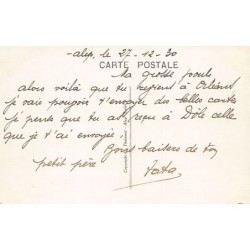 -alep, le 27-12-30
CARTE POSTALE
Ma grosse poule
alors voilà que tu repent à Orléans
je vais pouvoir t'envoyer des belles cartes
je pense que tu as reçu à Dôle celle
que je t'ai envoyée.
Gros baisers de ton
petit père
Tata